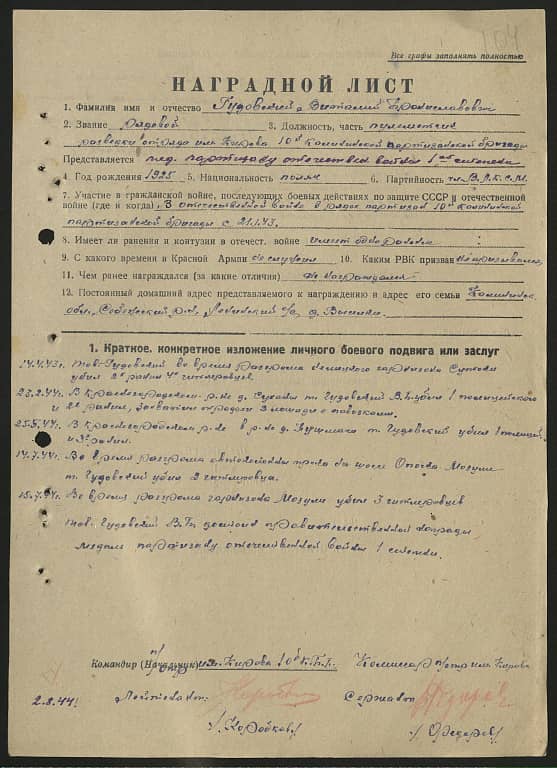 104
Все графы заполнять полностью
НАГРАДНОЙ ЛИСТ
1. Фамилия имя и отчество Гудовский Виталий Брониславович
2. Звание Рядовой 3. Должность, часть пулеметчик
разведки отряда им. Кирова 10й Калининской партизанской бригады
Представляется мед. партизану отечествен войны 1ой степени
4. Год рождения 1925 5. Национальность поляк 6. Партийность чл. В.Л.К.С.М.
7. Участие в гражданской войне, последующих боевых действиях по защите СССР и отечественной
войне (где и когда) В отечественной войне в рядах партизан 10й Калининской
партизанской бригады с 21.1.43.
8. Имеет ли ранения и контузии в отечест. войне имеет одно ранение
9. С какого времени в Красной Армии не служил 10. Каким РВК призван не призывался
11. Чем ранее награждался (за какие отличия) не награждался
12. Постоянный домашний адрес представляемого к награждению и адрес его семьи Калининск.
обл. р-н, с/с, д.
1. Краткое, конкретное изложение личного боевого подвига или заслуг
14.4.43г. Тов. Гудовский во время разгрома немецкого гарнизона
убил 2х ранил 4х гитлеровцев.
23.2.44г. В Красногородском р-не д. т. Гудовский В.Б. убил 1 полицейского
и 2х ранил, захватил трофеи 3 лошади с повозками.
25.5.44г. В Красногородском р-не в р-не д. т. Гудовский убил 1 полицей.
и 3х ранил.
14.7.44г. Во время разгрома автоколонны пр-ка на шоссе Опочка Мозули
т. Гудовский убил 2 гитлеровца.
15.7.44г. Во время разгрома гарнизона Мозули убил 3 гитлеровцев
Тов. Гудовский В.Б. достоин правительственной награды
медали партизану отечественной войны 1 степени.
Командир (Начальник) п/отр. им. Кирова 10й К.П.Б. Комиссар п/отр им Кирова
2.8.44г. Лейтенант: Сержант
/Коробков/ /Федоров/